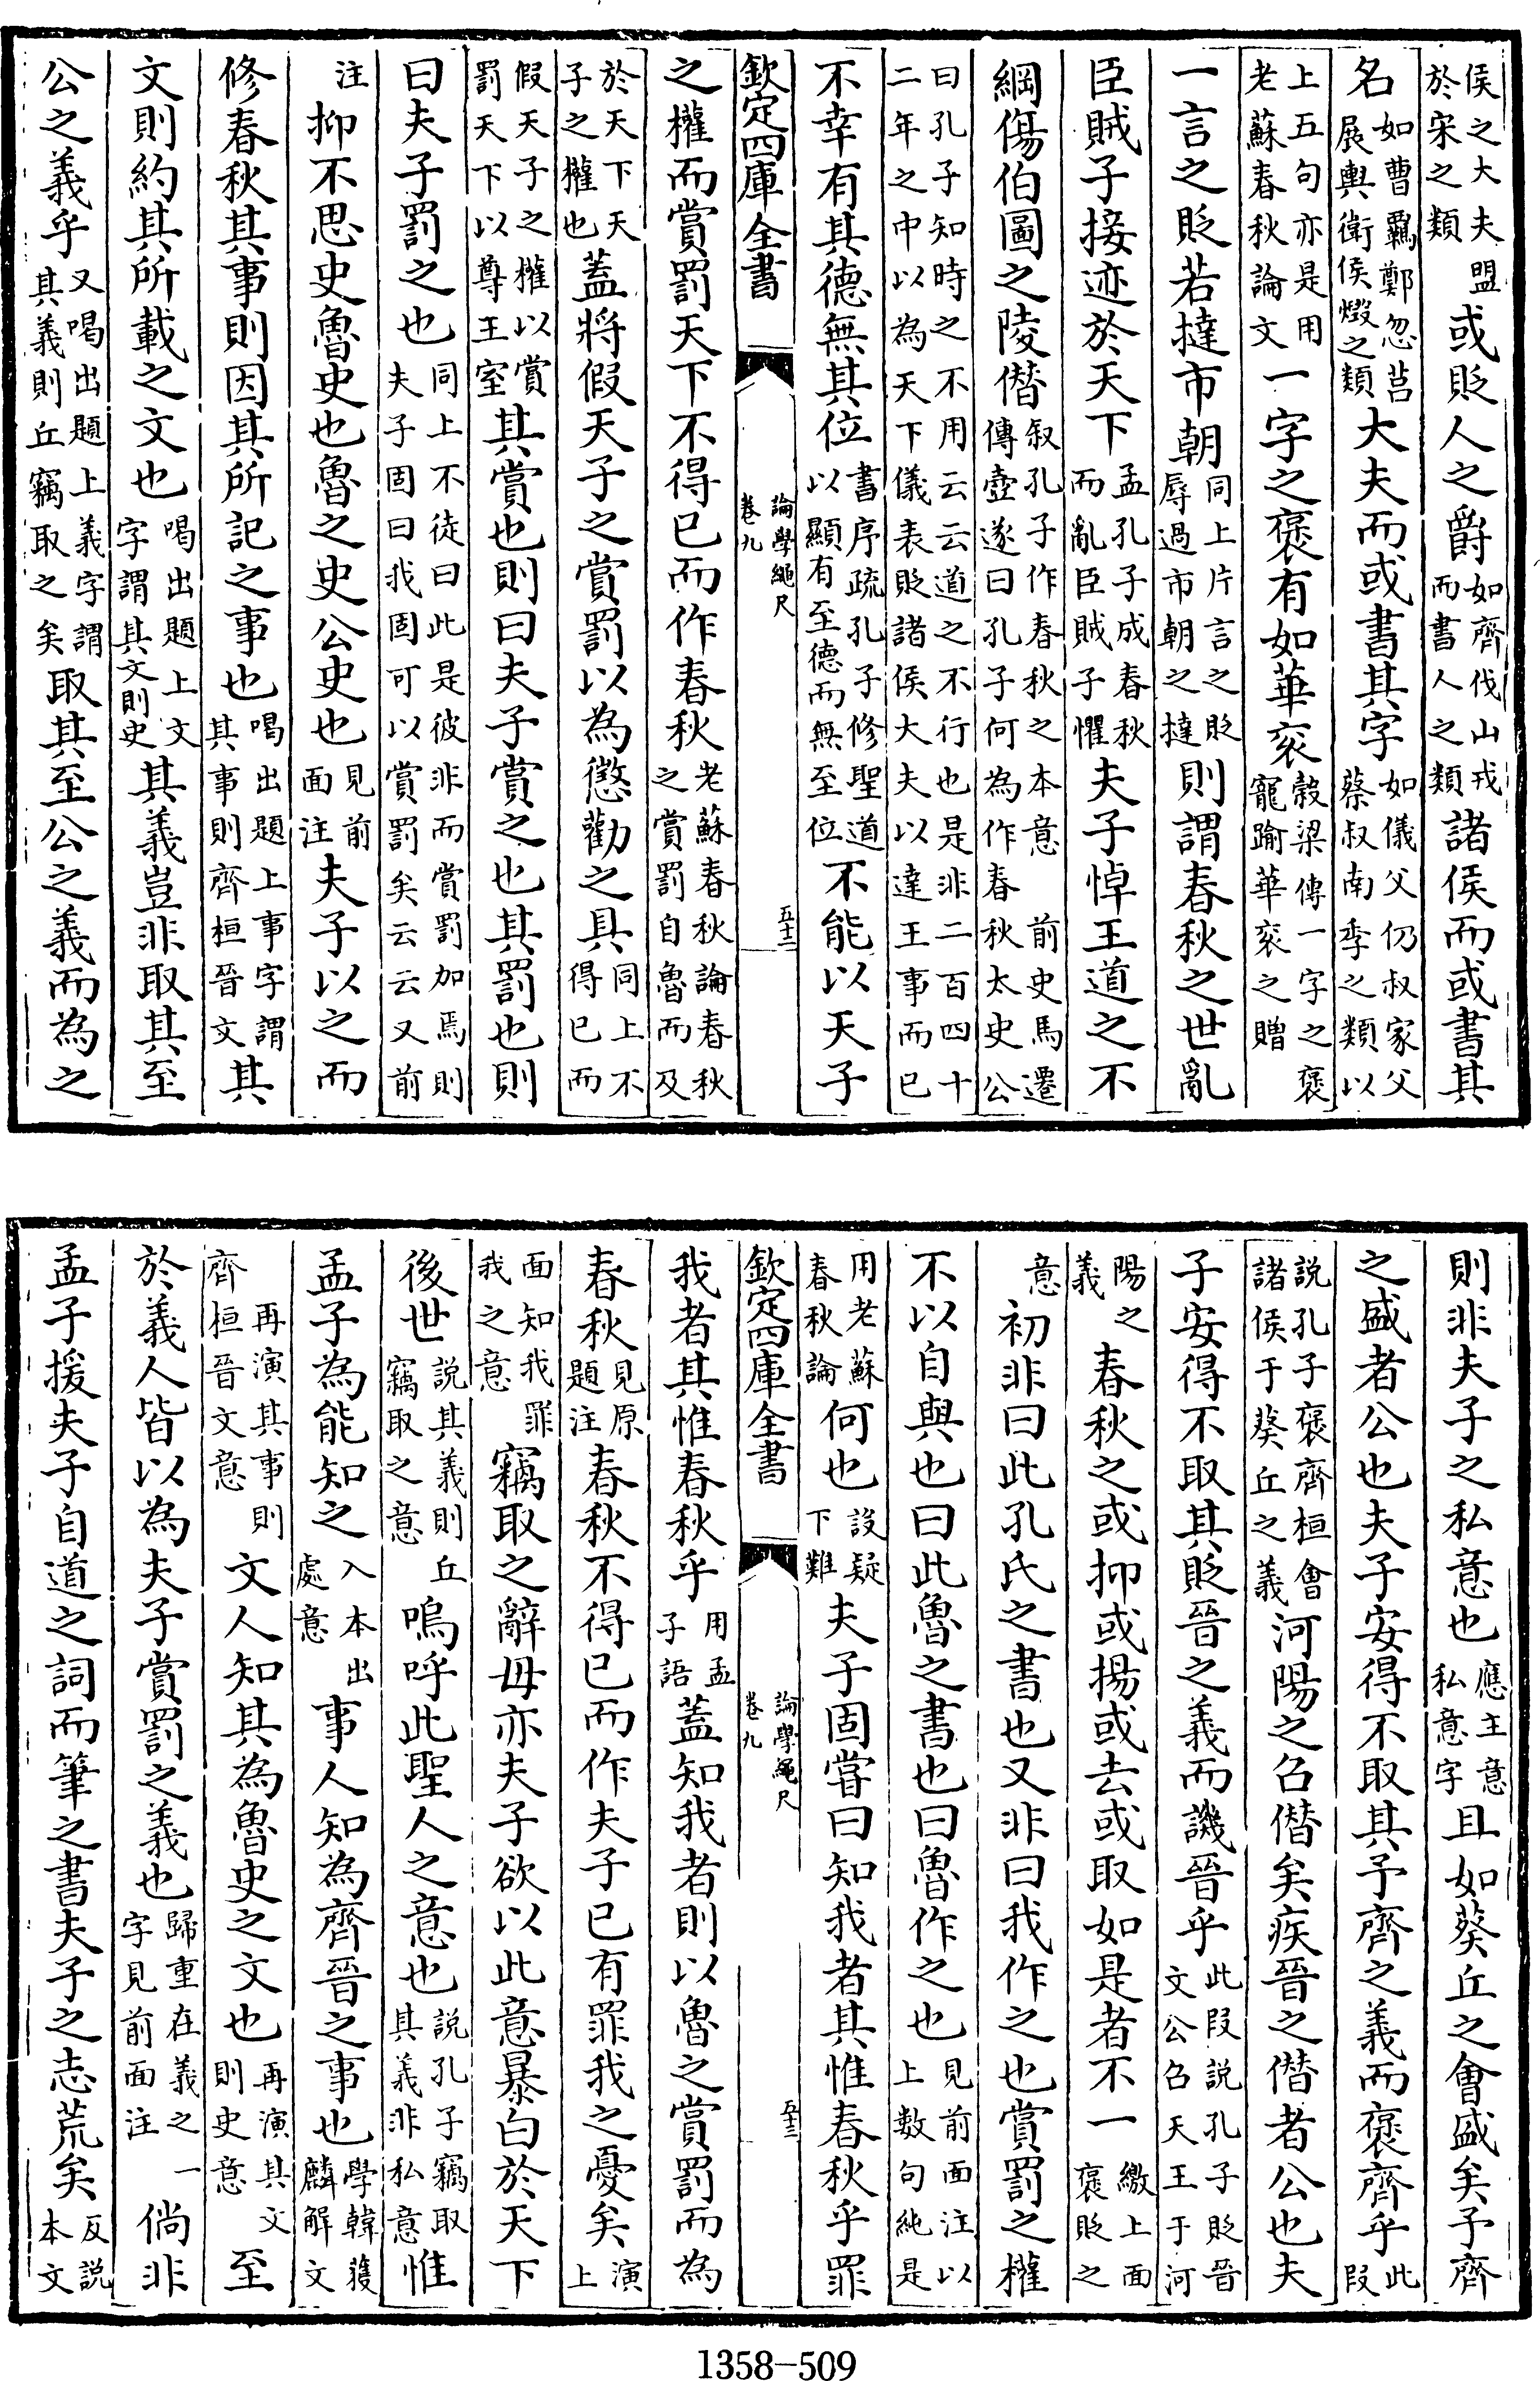 侯之大夫盟於宋之類或貶人之爵如齊伐山戎而書人之類諸侯而或書其
名如曹羈鄭忽莒展輿衛侯燬之類大夫而或書其字如儀父仍叔家父蔡叔南季之類以
上五句亦是用老蘇春秋論文一字之褒有如華衮榖梁傳一字之褒寵踰華衮之贈
一言之貶若撻市朝同上片言之貶辱過市朝之撻則謂春秋之世亂
臣賊子接迹於天下孟孔子成春秋而亂臣賊子懼夫子悼王道之不
綱傷伯圖之陵僣叙孔子作春秋之本意前史馬遷傳壺遂曰孔子何為作春秋太史公
曰孔子知時之不用云云道之不行也是非二百四十二年之中以為天下儀表貶諸侯大夫以達王事而已
不幸有其德無其位書序疏孔子修聖道以顯有至德而無至位不能以天子
欽定四庫全書
論學繩尺
卷九
五十三
之權而賞罰天下不得已而作春秋老蘇春秋論春秋之賞罰自魯而及
於天下天子之權也蓋將假天子之賞罰以為懲勸之具同上不得已而
假天子之權以賞罰天下以尊王室其賞也則曰夫子賞之也其罰也則
曰夫子罰之也同上不徒曰此是彼非而賞罰加焉則夫子固曰我固可以賞罰矣云云又前
注抑不思史魯史也魯之史公史也見前面注夫子以之而
修春秋其事則因其所記之事也喝出題上事字謂其事則齊桓晉文其
文則約其所載之文也喝出題上文字謂其文則史其義豈非取其至
公之義乎又喝出題上義字謂其義則丘竊取之矣取其至公之義而為之
則非夫子之私意也應主意私意字且如葵丘之會盛矣予齊
之盛者公也夫子安得不取其予齊之義而褒齊乎此段
說孔子褒齊桓會諸侯于葵丘之義河陽之召僣矣疾晉之僣者公也夫
子安得不取其貶晉之義而譏晉乎此段說孔子貶晉文公召天王于河
陽之義春秋之或抑或揚或去或取如是者不一繳上面褒貶之
意初非曰此孔氏之書也又非曰我作之也賞罰之權
不以自與也曰此魯之書也曰魯作之也見前面注以上數句純是
用老蘇春秋論何也設疑下難夫子固嘗曰知我者其惟春秋乎罪
欽定四庫全書
論學繩尺
卷九
五十三
我者其惟春秋乎用孟子語蓋知我者則以魯之賞罰而為
春秋見原題注春秋不得已而作夫子已有罪我之憂矣演上
面知我罪我之意竊取之辭毋亦夫子欲以此意暴白於天下
後世說其義則丘竊取之意嗚呼此聖人之意也說孔子竊取其義非私意惟
孟子為能知之入本出處意事人知為齊晉之事也學韓獲麟解文
再演其事則齊桓晉文意文人知其為魯史之文也再演其文則史意至
於義人皆以為夫子賞罰之義也歸重在義之一字見前面注倘非
孟子援夫子自道之詞而筆之書夫子之志荒矣反說本文
1358-509